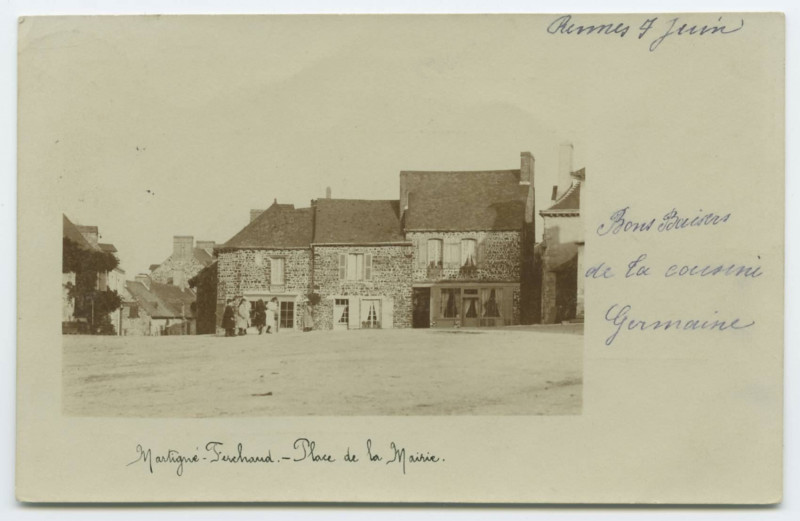 Rennes 4 Juin
Bons Baisers
de la cousine
Germaine
Martigné-Ferchaud.-Place de la Mairie.